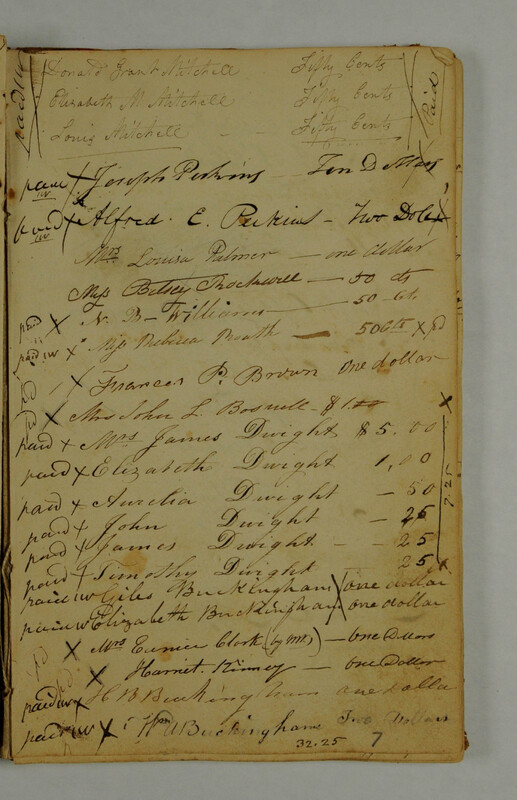 paid Donald Grant Mitchell Fifty Cents Paid
Elizabeth M Mitchell Fifty Cents
Louis Mitchell - - Fifty Cents
paid X Joseph Perkins - Ten Dollars
paid X Alfred. E. Perkins - Two Dols X
Mrs Louisa Palmer - one dollar
Miss Betsey Thockwell - 50 cts
paid X N. B- Williams - 50 cts
paid X Miss Rebecca Booth - 50 cts X pd
pd X Frances P. Brown one dollar
pd X Mrs John L Boswell - $1.00
paid X Mrs James Dwight $5.00 X
paid X Elizabeth Dwight 1,00
paid X Aurelia Dwight - 50 7.25
paid X John Dwight - 25
paid X James Dwight - - 25
paid X Timothy Dwight 25 X
paid W Giles Buckingham X one dollar
paid W Elizabeth Buckingham one dollar
pd X Mrs Eunice Clark (by Mr.) - one Dollars
pd X Harriet Kinney - one Dollar
paid W X H B Buckingham one dolla
paid W X Wm A Buckingham Two Dollars
32.25 7